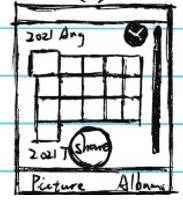 2021 Aug
2021 J
share
Picture Albums